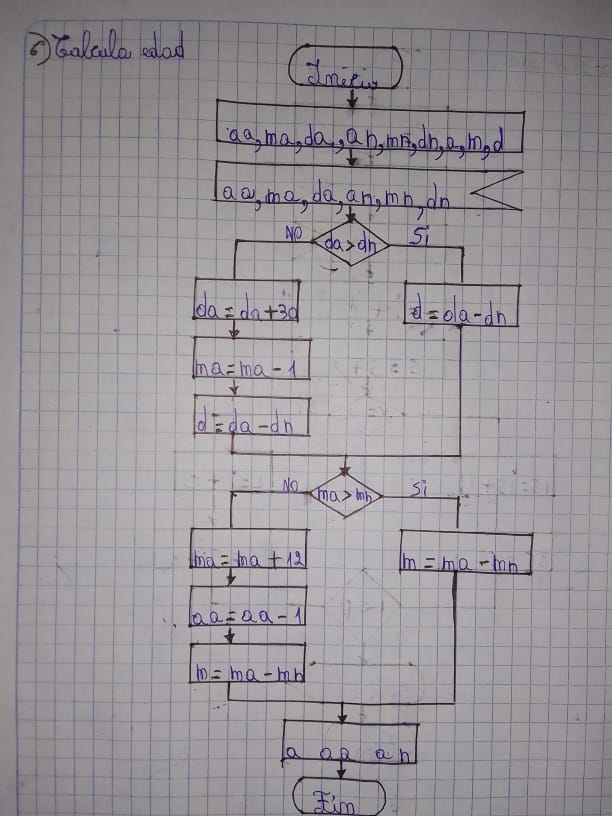 6) Calcula edad
Inicio
aa, ma, da, an, mn, dn, a, m, d
aa, ma, da, an, mn, dn
NO da > dn Si
da = da + 30
d = da - dn
ma = ma - 1
d = da - dn
NO ma > mn Si
ma = ma + 12
m = ma - mn
aa = aa - 1
m = ma - mn
a aa an
Fin